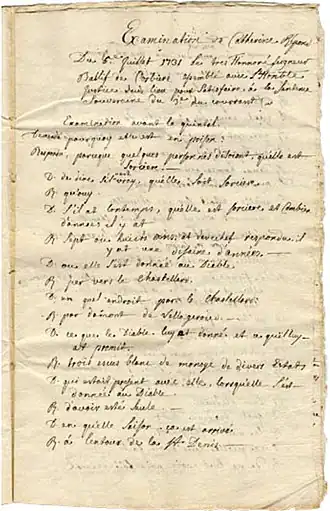 Examination de Catherine Repond
Du 5e Juillet 1731 le tres Honnoré Seigneur
Ballif de Corbiers assemblé avec l'honorable
Justice dudt lieu pour Satisfaire à la Sentence
Souveraine du du courrant
Examination avant le quintil.
pourquoy elle est en prison:
Respond, parceque quelques personnes disoient, qu'elle est
Sorciere: —
D. de dire s'il est vray, qu'elle soit Sorciere
R. qu'ouy
D. S'il at lontemps, qu'elle est sorciere et Combien
d'annees il y at
R. Sept ou huict ans: et respondu: il
y at une disaine d'années —
D. ou elle s'est donnée au Diable.
R. par vers le Chastellers.
D. en quel endroit par le Chastellers:
R. par damont de Villagerrin —
D. ce que le Diable luy at donné et ce qu'il luy
at promit.
R. trois escus blanc de monoye de divers Estats
D. qui estoit present avec elle, lorsquelle s'est
donnée au Diable.
R. d'avoir estée seule —
D. en quelle saison ça est arrivé
R. à lentour de la St Denis —